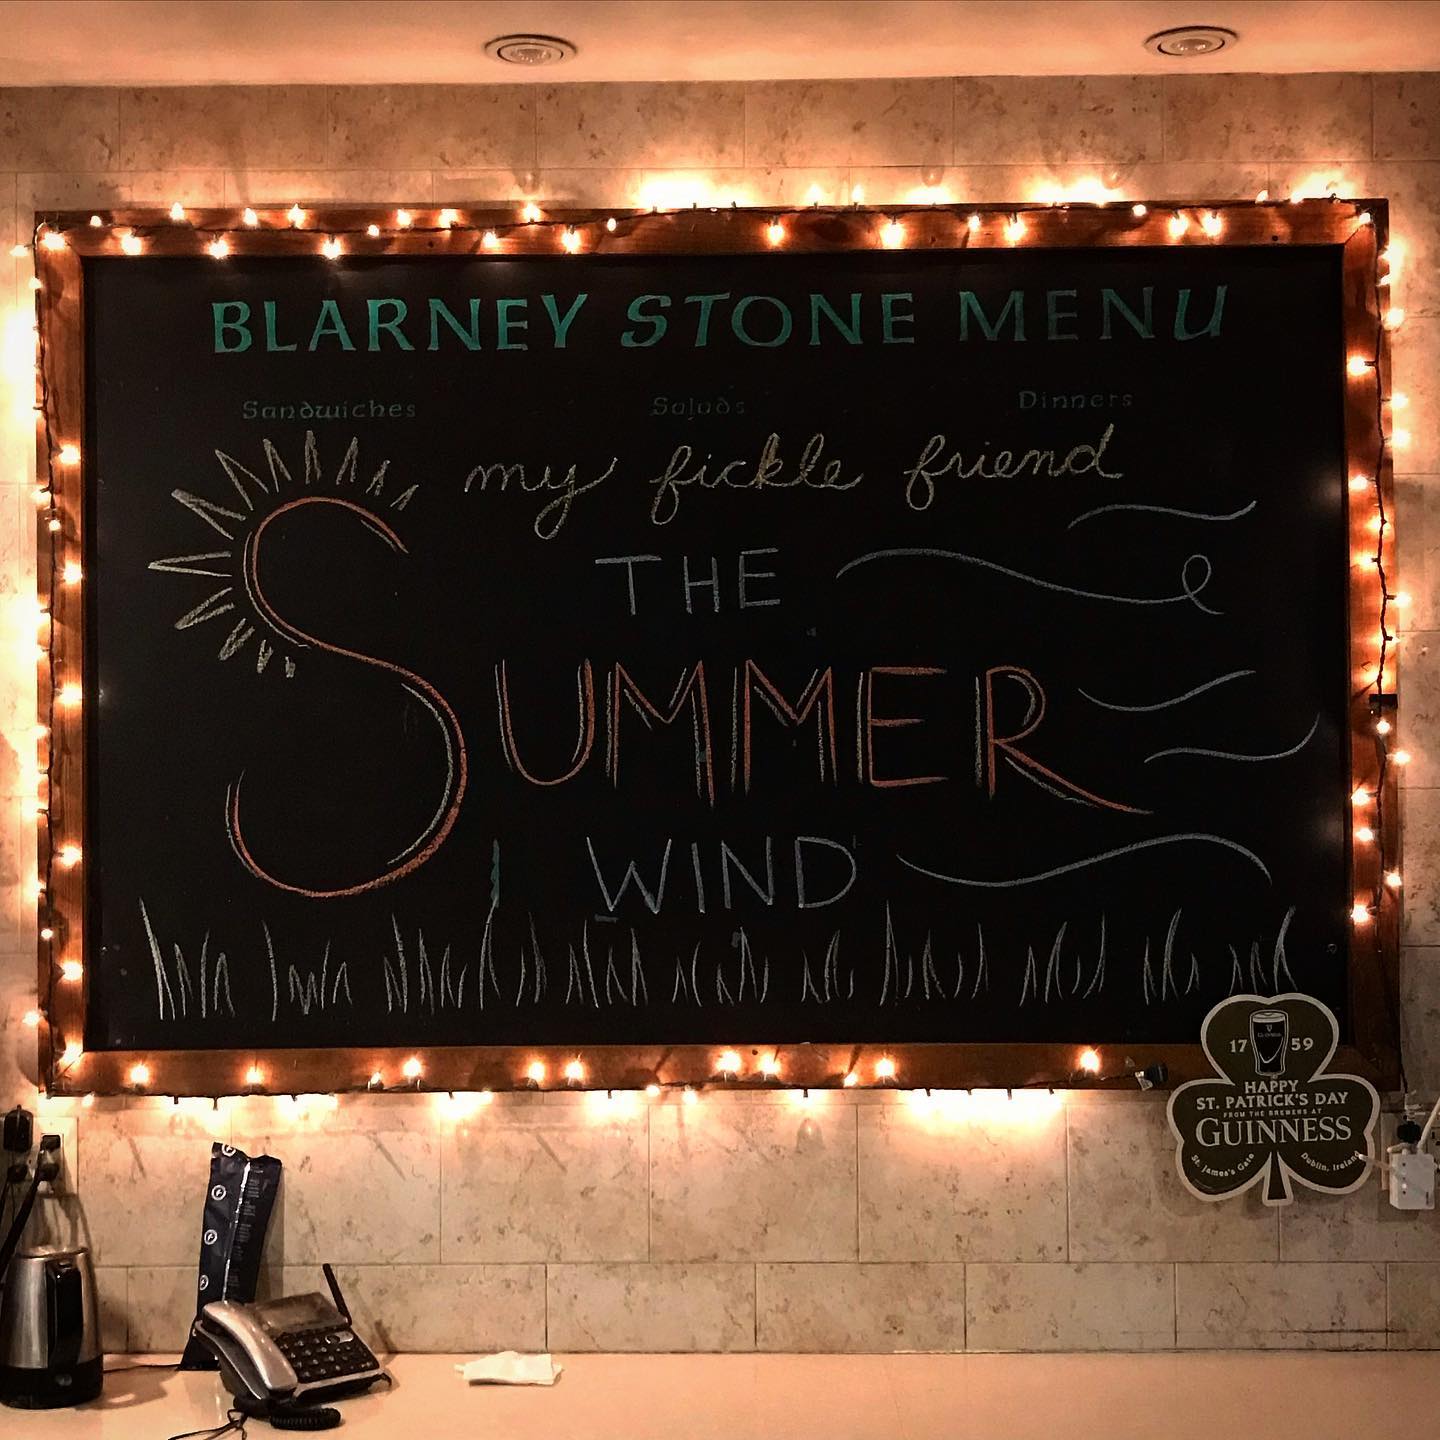 BLARNEY STONE MENU
Sandwiches Salads Dinners
my fickle friend
THE
SUMMER
WIND
17 59
HAPPY
ST. PATRICK'S DAY
FROM THE BREWERS AT
GUINNESS
St. James's Gate Dublin, Ireland